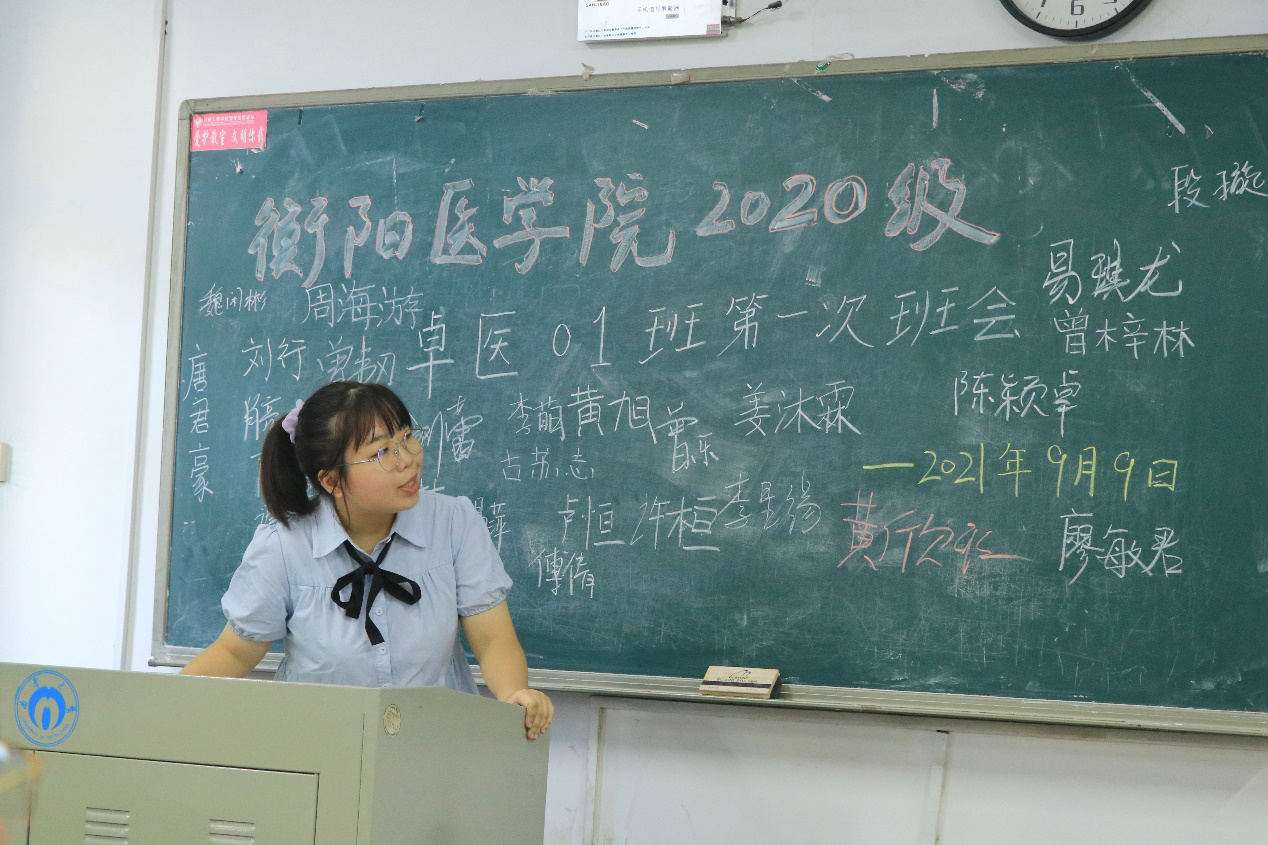 爱护教室 文明你我
衡阳医学院2020级
段璇
魏闲彬 周海游
易骐龙
卓医01班第一次班会
曾梓林
刘行 曾韧
唐君豪
李萌 黄旭 曾乐 姜沐霖 陈颖卓
古苏志
—2021年9月9日
卢恒 许桓 李星缘 黄欣 廖敏君
傅倩
6